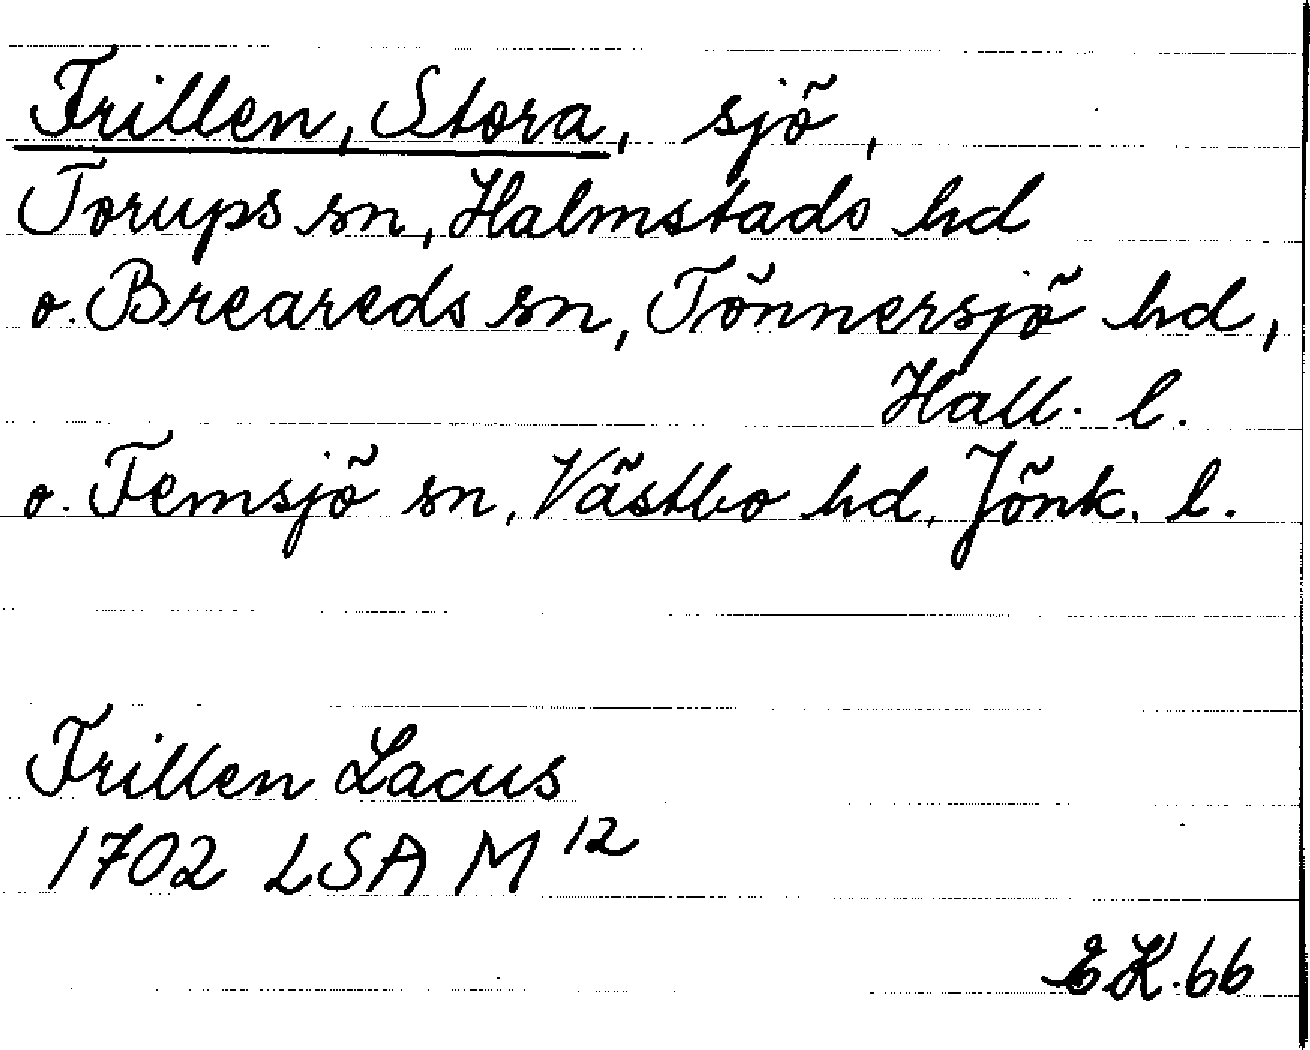 Frillen, Stora, sjö,
Torups sn, Halmstads hd
o. Breareds sn, Tönnersjö hd,
Hall. l.
o. Femsjö sn, Västbo hd, Jönk. l.
Frillen Lacus
1702 LSA M 12
EK.66